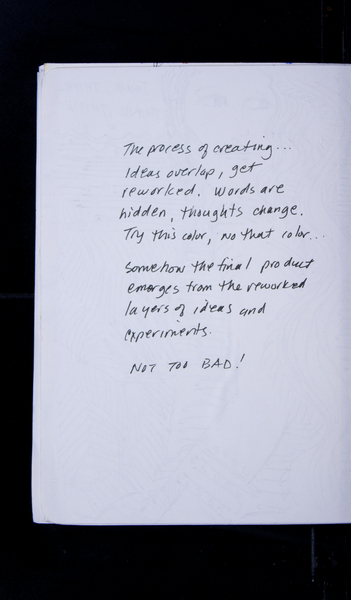 The process of creating...
Ideas overlap, get
reworked. Words are
hidden, thoughts change.
Try this color, no that color...
Somehow the final product
emerges from the reworked
layers of ideas and
experiments.
NOT TOO BAD!